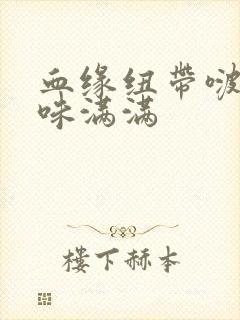 血缘纽带啵
咪满满
楼下赫本